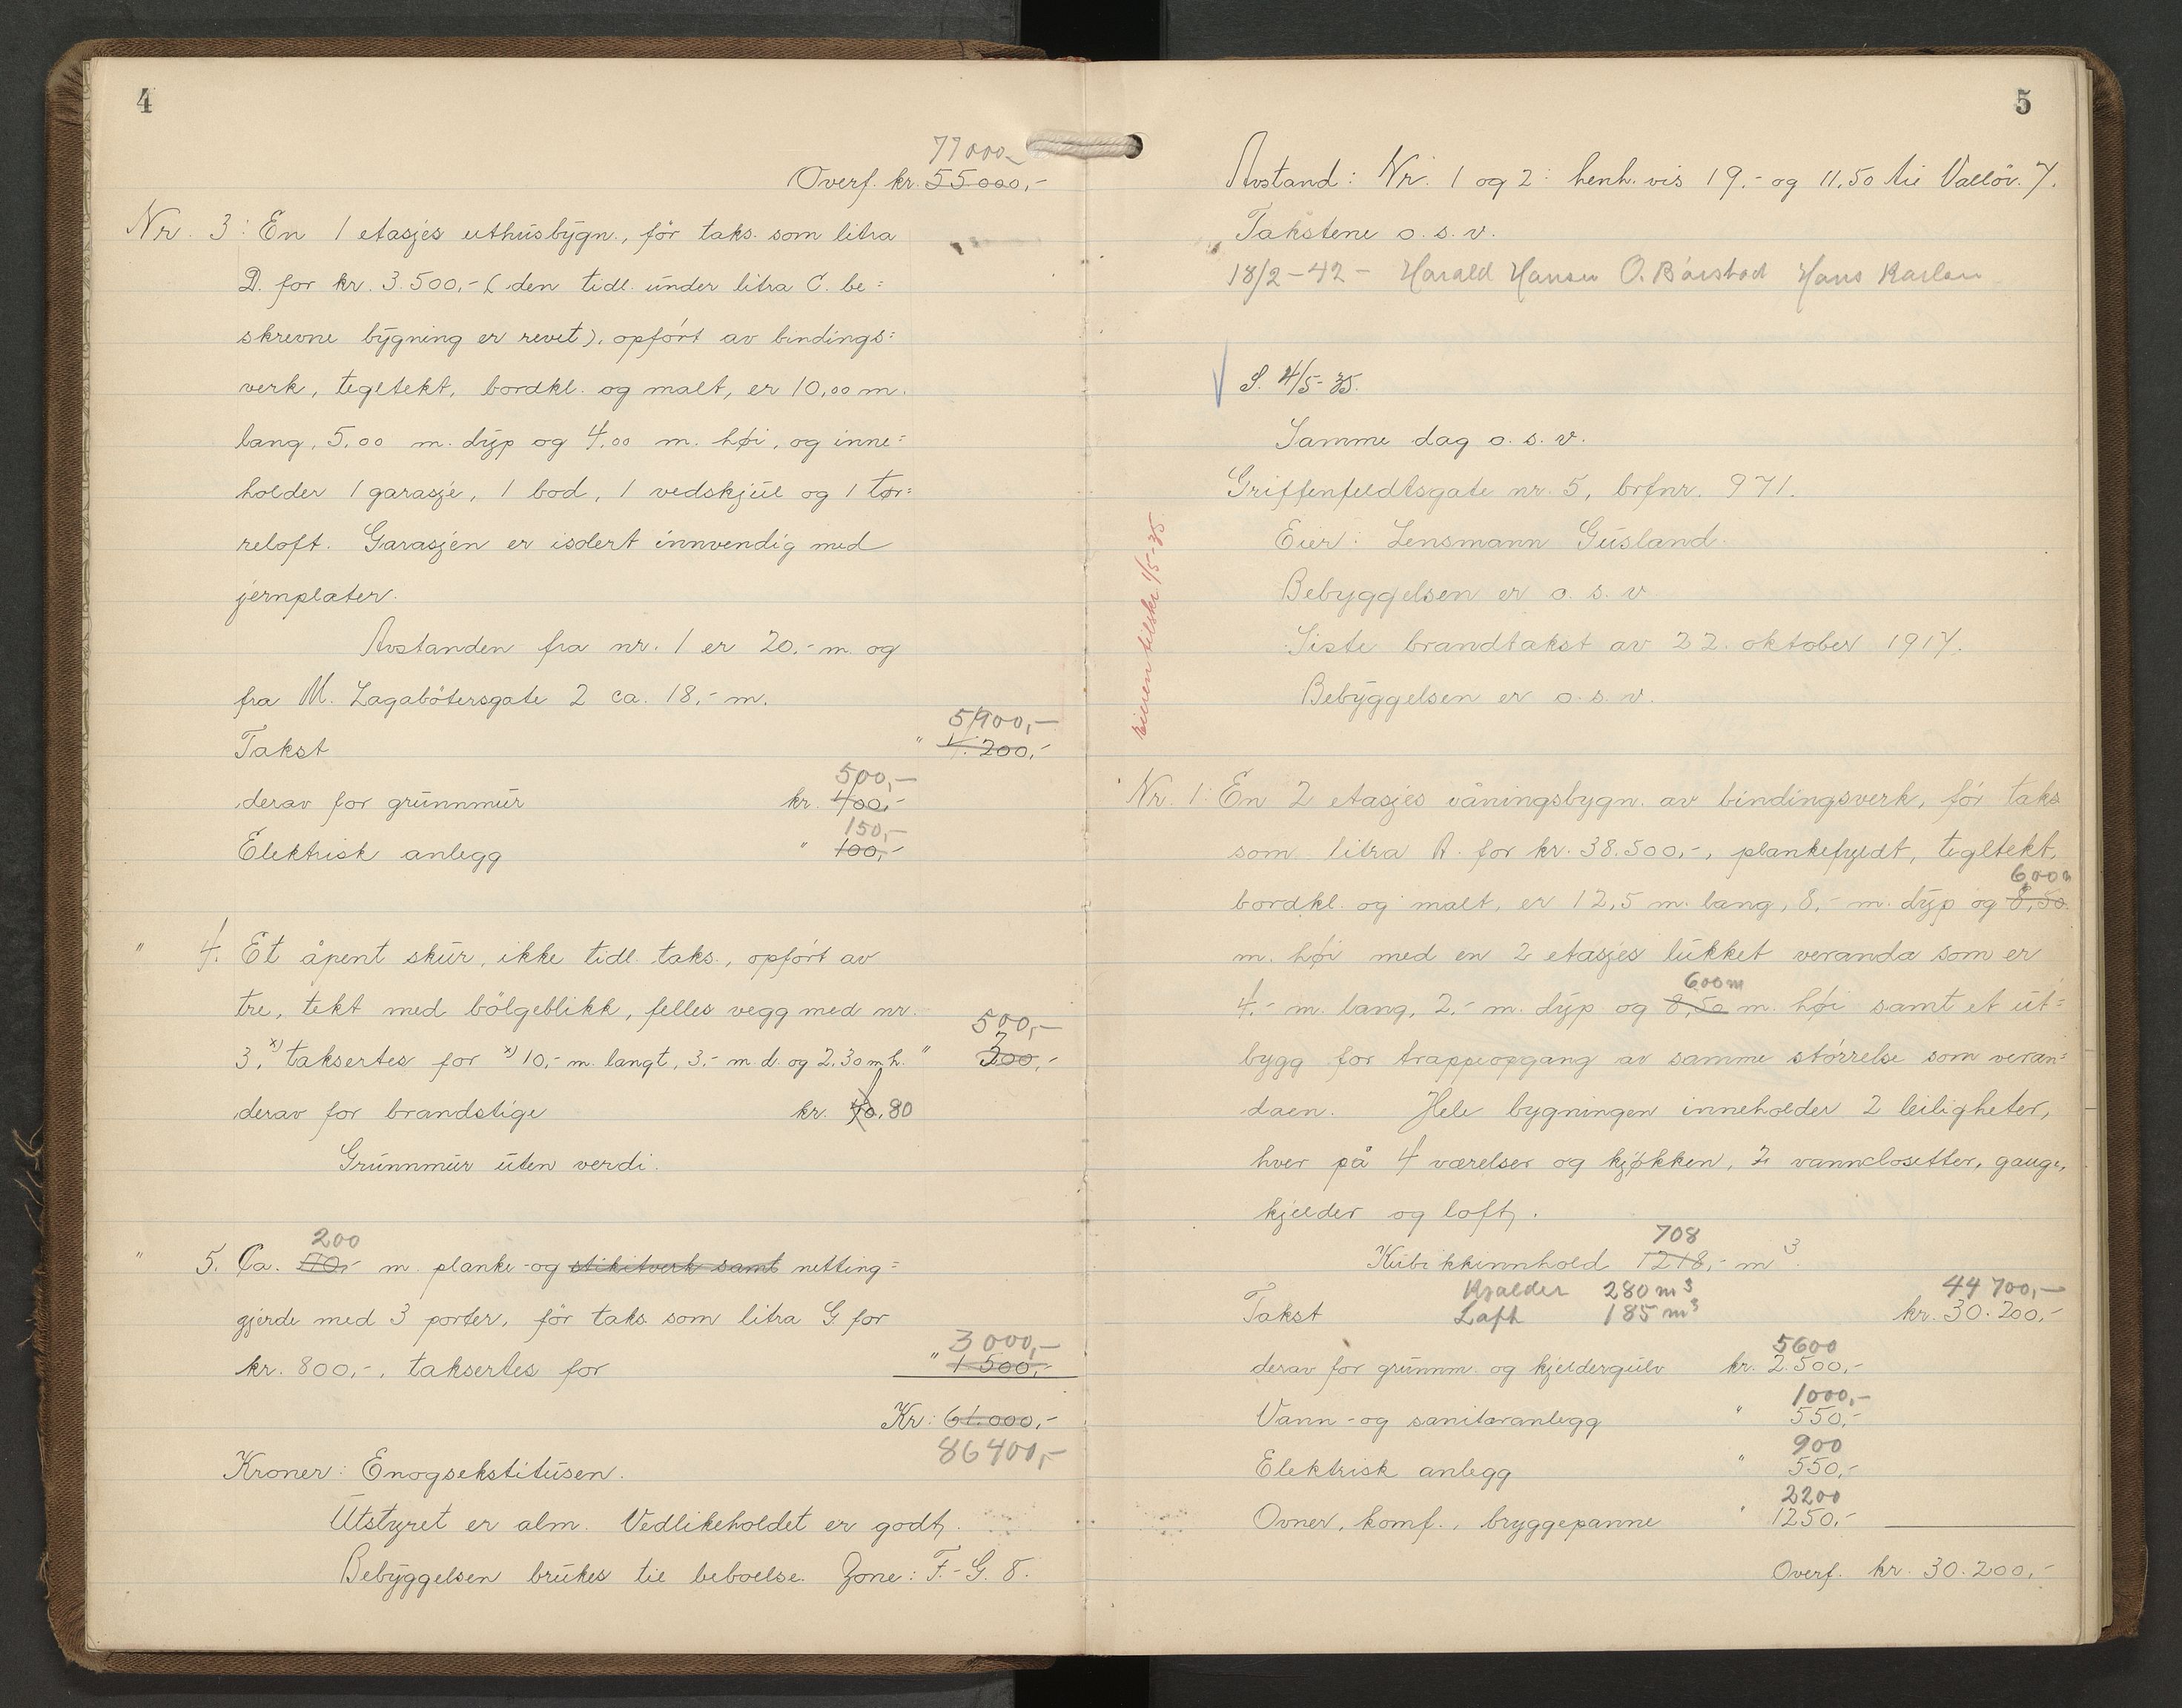 4
77000,-
Overf. kr. 55000,-
Nr. 3: En 1 etasjes uthusbygn., før taks. som litra
D. for kr. 3.500,- (den tidl. under litra C. be=
skrevne bygning er revet), opført av bindings=
verk, tegltekt, bordkl. og malt, er 10,00 m.
lang, 5,00 m. dyp og 4,00 m. høi, og inne=
holder 1 garasje, 1 bod, 1 vedskjul og 1 tør=
reloft. Garasjen er isolert innvendig med
jernplater.
Avstanden fra nr. 1 er 20,- m. og
fra M. Lagabøtersgate 2 ca. 18,- m.
5900,-
Takst " 4.200,-
500,-
derav for grunnmur kr. 400,-
150,-
Elektrisk anlegg " 100,-
" 4. Et åpent skur, ikke tidl. taks., opført av
tre, tekt med bølgeblikk, felles vegg med nr.
500,-
3, x) taksertes for x) 10,- m. langt, 3,- m. d. og 2,30 m. h. " 300,-
derav for brandstige kr. 40, 80
Grunnmur uten verdi.
200
" 5. Ca. 110,- m. planke- og stikitverk samt netting=
gjerde med 3 porter, før taks. som litra G for
3000,-
kr. 800,-, taksertes for " 1500,-
Kr: 61.000,-
86400,-
Kroner: Enogsekstitusen.
Utstyret er alm. Vedlikeholdet er godt.
Bebyggelsen brukes til beboelse. Zone: F.-G. 8.
5
Avstand: Nr. 1 og 2: henh. vis 19,- og 11,50 til Valløv. 7.
Takstene o. s. v.
18/2-42 - Harald Hansen O. Bårstad Hans Karlsen
S. 4/5-35.
Samme dag o. s. v.
Griffenfeldtsgate nr. 5, brfnr. 971.
Eier: Lensmann Gusland.
Bebyggelsen er o. s. v.
Siste brandtakst av 22. oktober 1917.
Bebyggelsen er o. s. v.
Eieren tilskr. 1/5-35
Nr. 1: En 2 etasjes våningsbygn. av bindingsverk, før taks
som litra A. for kr. 38.500,-, plankefyldt, tegltekt,
6,00 m
bordkl. og malt, er 12,5 m. lang, 8,- m. dyp og 8,50
m. høi med en 2 etasjes lukket veranda som er
600 m
4,- m. lang, 2,- m. dyp og 8,50 m. høi samt et ut=
bygg for trappeopgang av samme størrelse som veran=
daen. Hele bygningen inneholder 2 leiligheter,
hver på 4 værelser og kjøkken, 2 vannclosetter, gange,
kjelder og loft.
708
Kubikkinnhold 1218,- m3.
Kjælder 280 m3 44700,-
Takst Loft 185 m3 kr. 30.200,-
5600
derav for grunnm. og kjeldergulv kr. 2.500,-
1000,-
Vann- og sanitæranlegg " 550,-
900
Elektrisk anlegg " 550,-
2200
Ovner, komf., bryggepanne " 1250,-
Overf. kr. 30.200,-